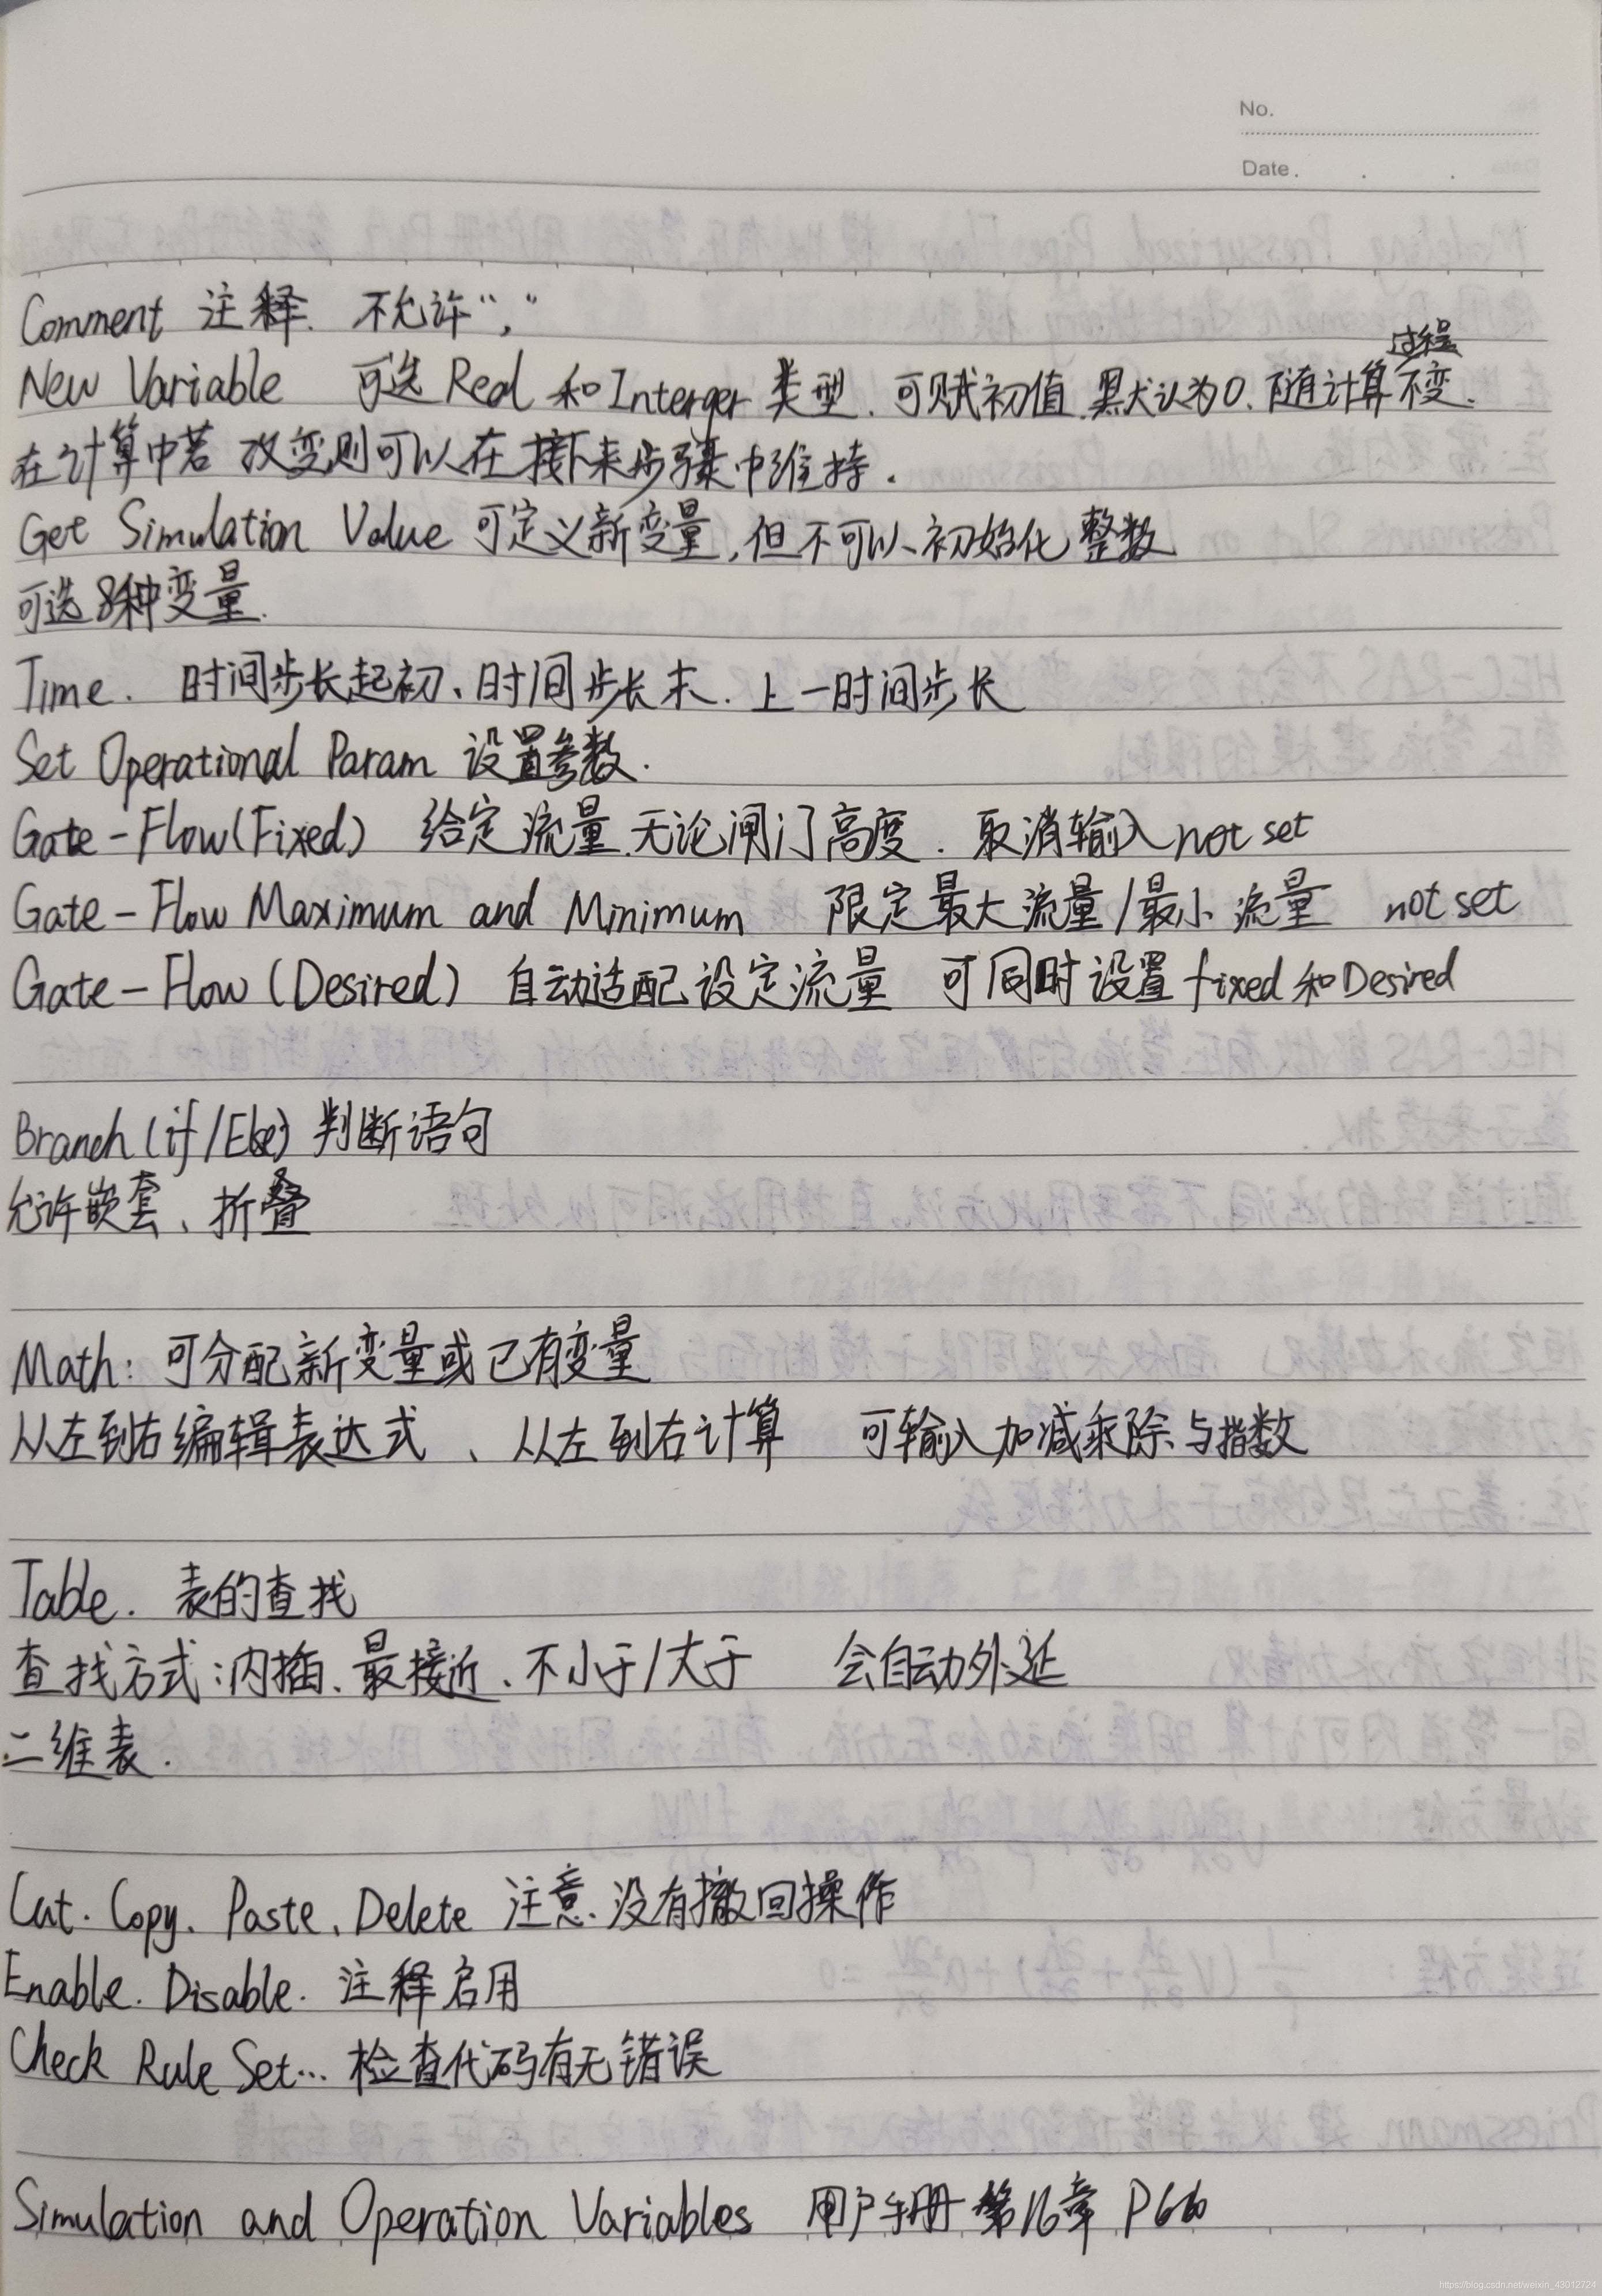 No.
Date.
Comment 注释. 不允许“,”
New Variable 可选 Real 和 Interger 类型. 可赋初值. 默认为0. 随计算过程不变.
在计算中若改变则可以在接下来步骤中维持.
Get Simulation Value 可定义新变量,但不可以初始化整数
可选8种变量.
Time. 时间步长起初、时间步长末. 上一时间步长
Set Operational Param 设置参数.
Gate-Flow(Fixed) 给定流量.无论闸门高度. 取消输入not set
Gate-Flow Maximum and Minimum 限定最大流量/最小流量 not set
Gate-Flow (Desired) 自动适配设定流量 可同时设置 fixed和Desired
Branch(if/Else) 判断语句
允许嵌套、折叠
Math: 可分配新变量或已有变量
从左到右编辑表达式 、从左到右计算 可输入加减乘除与指数
Table. 表的查找
查找方式:内插、最接近、不小于/大于 会自动外延
二维表.
Cut. Copy. Paste、Delete 注意.没有撤回操作
Enable. Disable. 注释启用
Check Rule Set... 检查代码有无错误
Simulation and Operation Variables 用户手册 第16章
https://blog.csdn.net/weixin_43012724